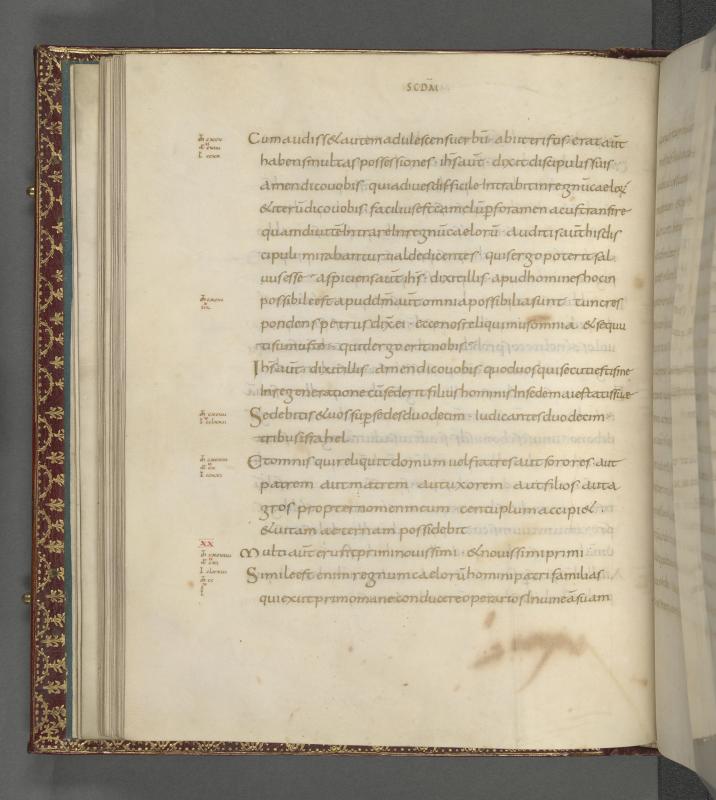 SCDM̄
Cum audisset autem adulescens uerbū abiit tristis · erat aūt
habens multas possessiones · ihs aūt · dixit discipulis suis
amen dico uobis · quia diues difficile intrabit in regnū caeloꝝ
& iterū dico uobis · facilius est camelū p foramen acus transire
quam diuitē intrare in regnū caelorū · auditis aūt his dis
cipuli mirabantur ualde dicentes · quis ergo poterit sal
uus esse · aspiciens aūt ihs · dixit illis · apud homines hoc in
possibile est apud dm̄ aūt omnia possibilia sunt · tunc res
pondens petrus dix ei · ecce nos reliquimus omnia · & secu
ti sumus te · quid ergo erit nobis
Ihs aūt · dixit illis · amen dico uobis quod uos qui secuti estis me
In regeneratione cū sederit filius hominis In sede maiestatis suae
Sedebitis & uos sup sedes duodecim · Iudicantes duodecim
tribus israhel
Et omnis qui reliquit domum uel fratres aut sorores aut
patrem aut matrem aut uxorem aut filios aut a
gros propter nomen meum centuplum accipi& ·
& uitam aeternam possidebit
XX
Multi aūt erunt primi nouissimi · & nouissimi primi
Simile est enim regnum caelorū homini patri familias
qui exiit primo mane conducere operarios In uineā suam